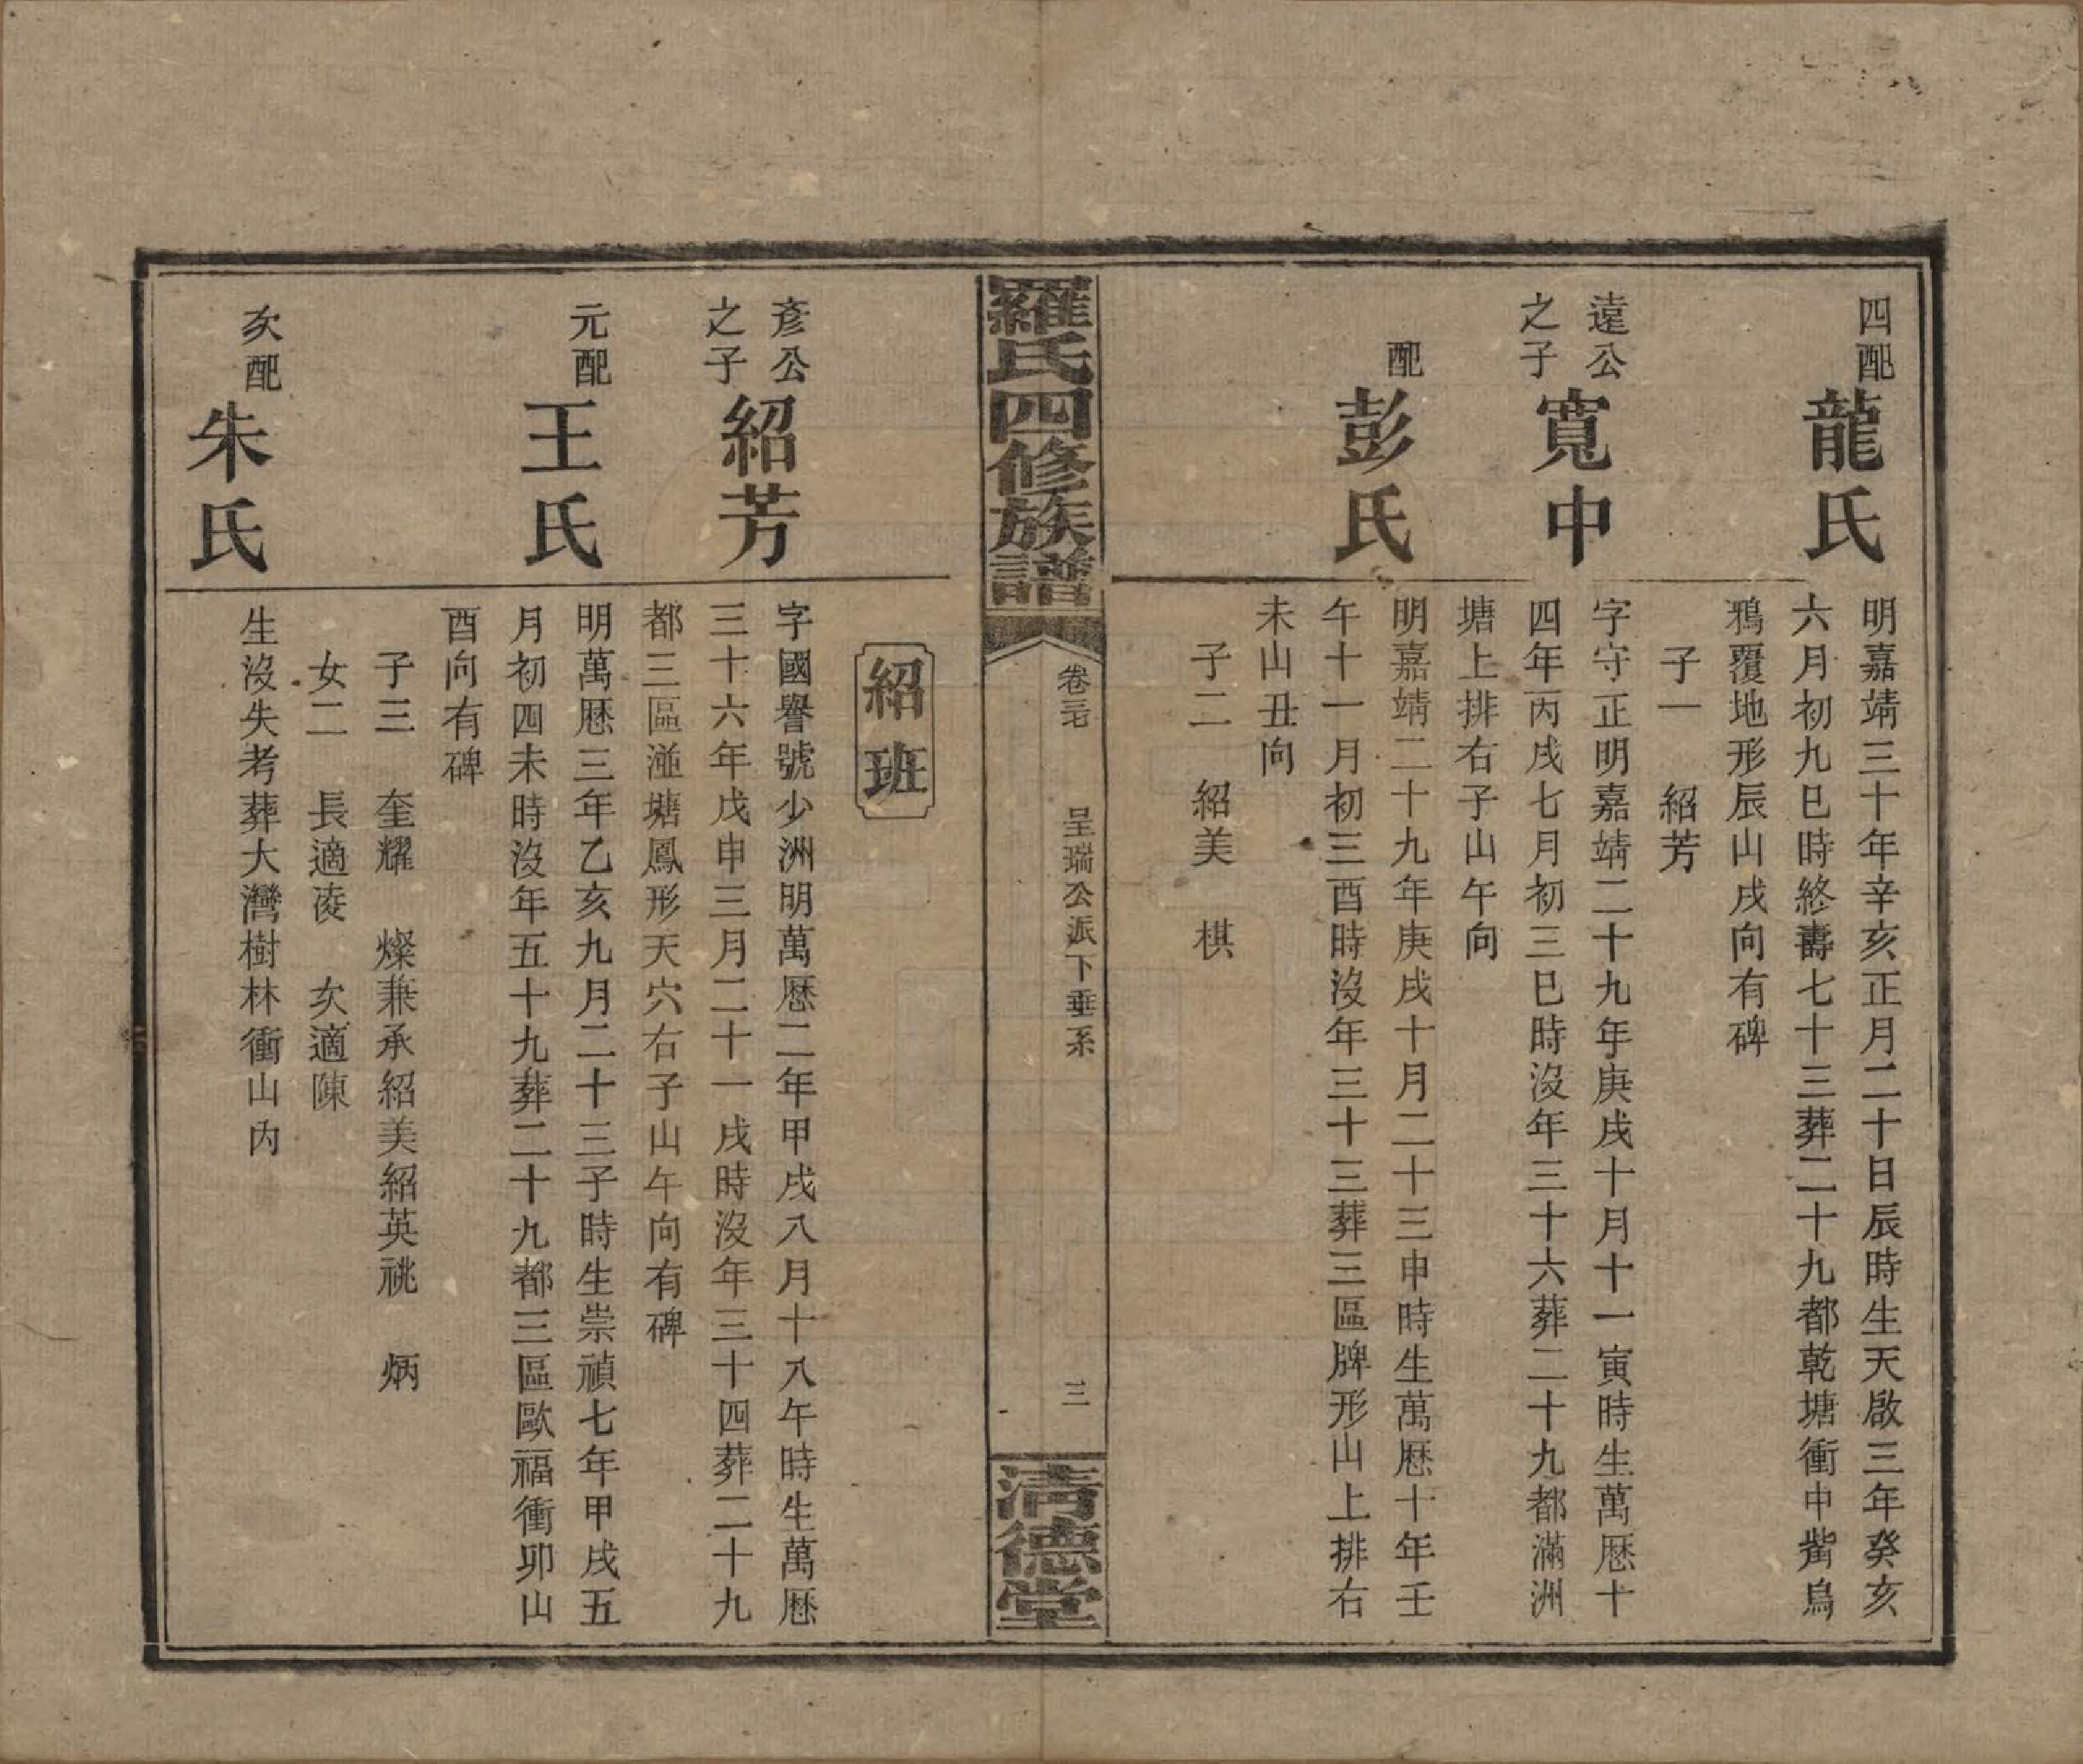 四配
龍氏
明嘉靖三十年辛亥正月二十日辰時生天啟三年癸亥
六月初九巳時終壽七十三葬二十九都乾塘衝中觜烏
鴉覆地形辰山戌向有碑
子一　紹芳
遠公
之子
寬中
字守正明嘉靖二十九年庚戌十月十一寅時生萬厯十
四年丙戌七月初三巳時沒年三十六葬二十九都滿洲
塘上排右子山午向
配
彭氏
明嘉靖二十九年庚戌十月二十三申時生萬厯十年壬
午十一月初三酉時沒年三十三葬三區牌形山上排右
未山丑向
子二　紹美　棋
羅氏四修族譜
呈瑞公派下垂系
三
清德堂
紹班
彥公
之子
紹芳
字國譽號少洲明萬厯二年甲戌八月十八午時生萬厯
三十六年戊申三月二十一戌時沒年三十四葬二十九
都三區塘鳳形天穴右子山午向有碑
元配
王氏
明萬厯三年乙亥九月二十三子時生崇禎七年甲戌五
月初四未時沒年五十九葬二十九都三區歐福衝卯山
酉向有碑
子三　奎耀　燦兼承紹美紹英祧　炳
女二　長適凌　次適陳
次配
朱氏
生沒失考葬大灣樹林衝山內